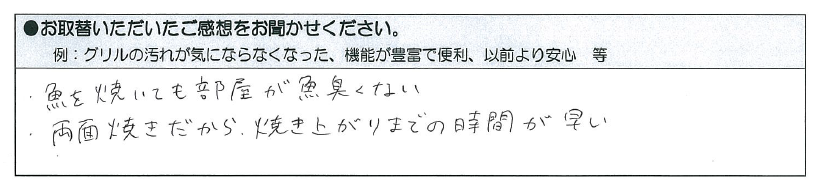 ●お取替いただいたご感想をお聞かせください。
例：グリルの汚れが気にならなくなった、機能が豊富で便利、以前より安心　等
・魚を焼いても部屋が魚臭くない
・両面焼きだから、焼き上がりまでの時間が早い